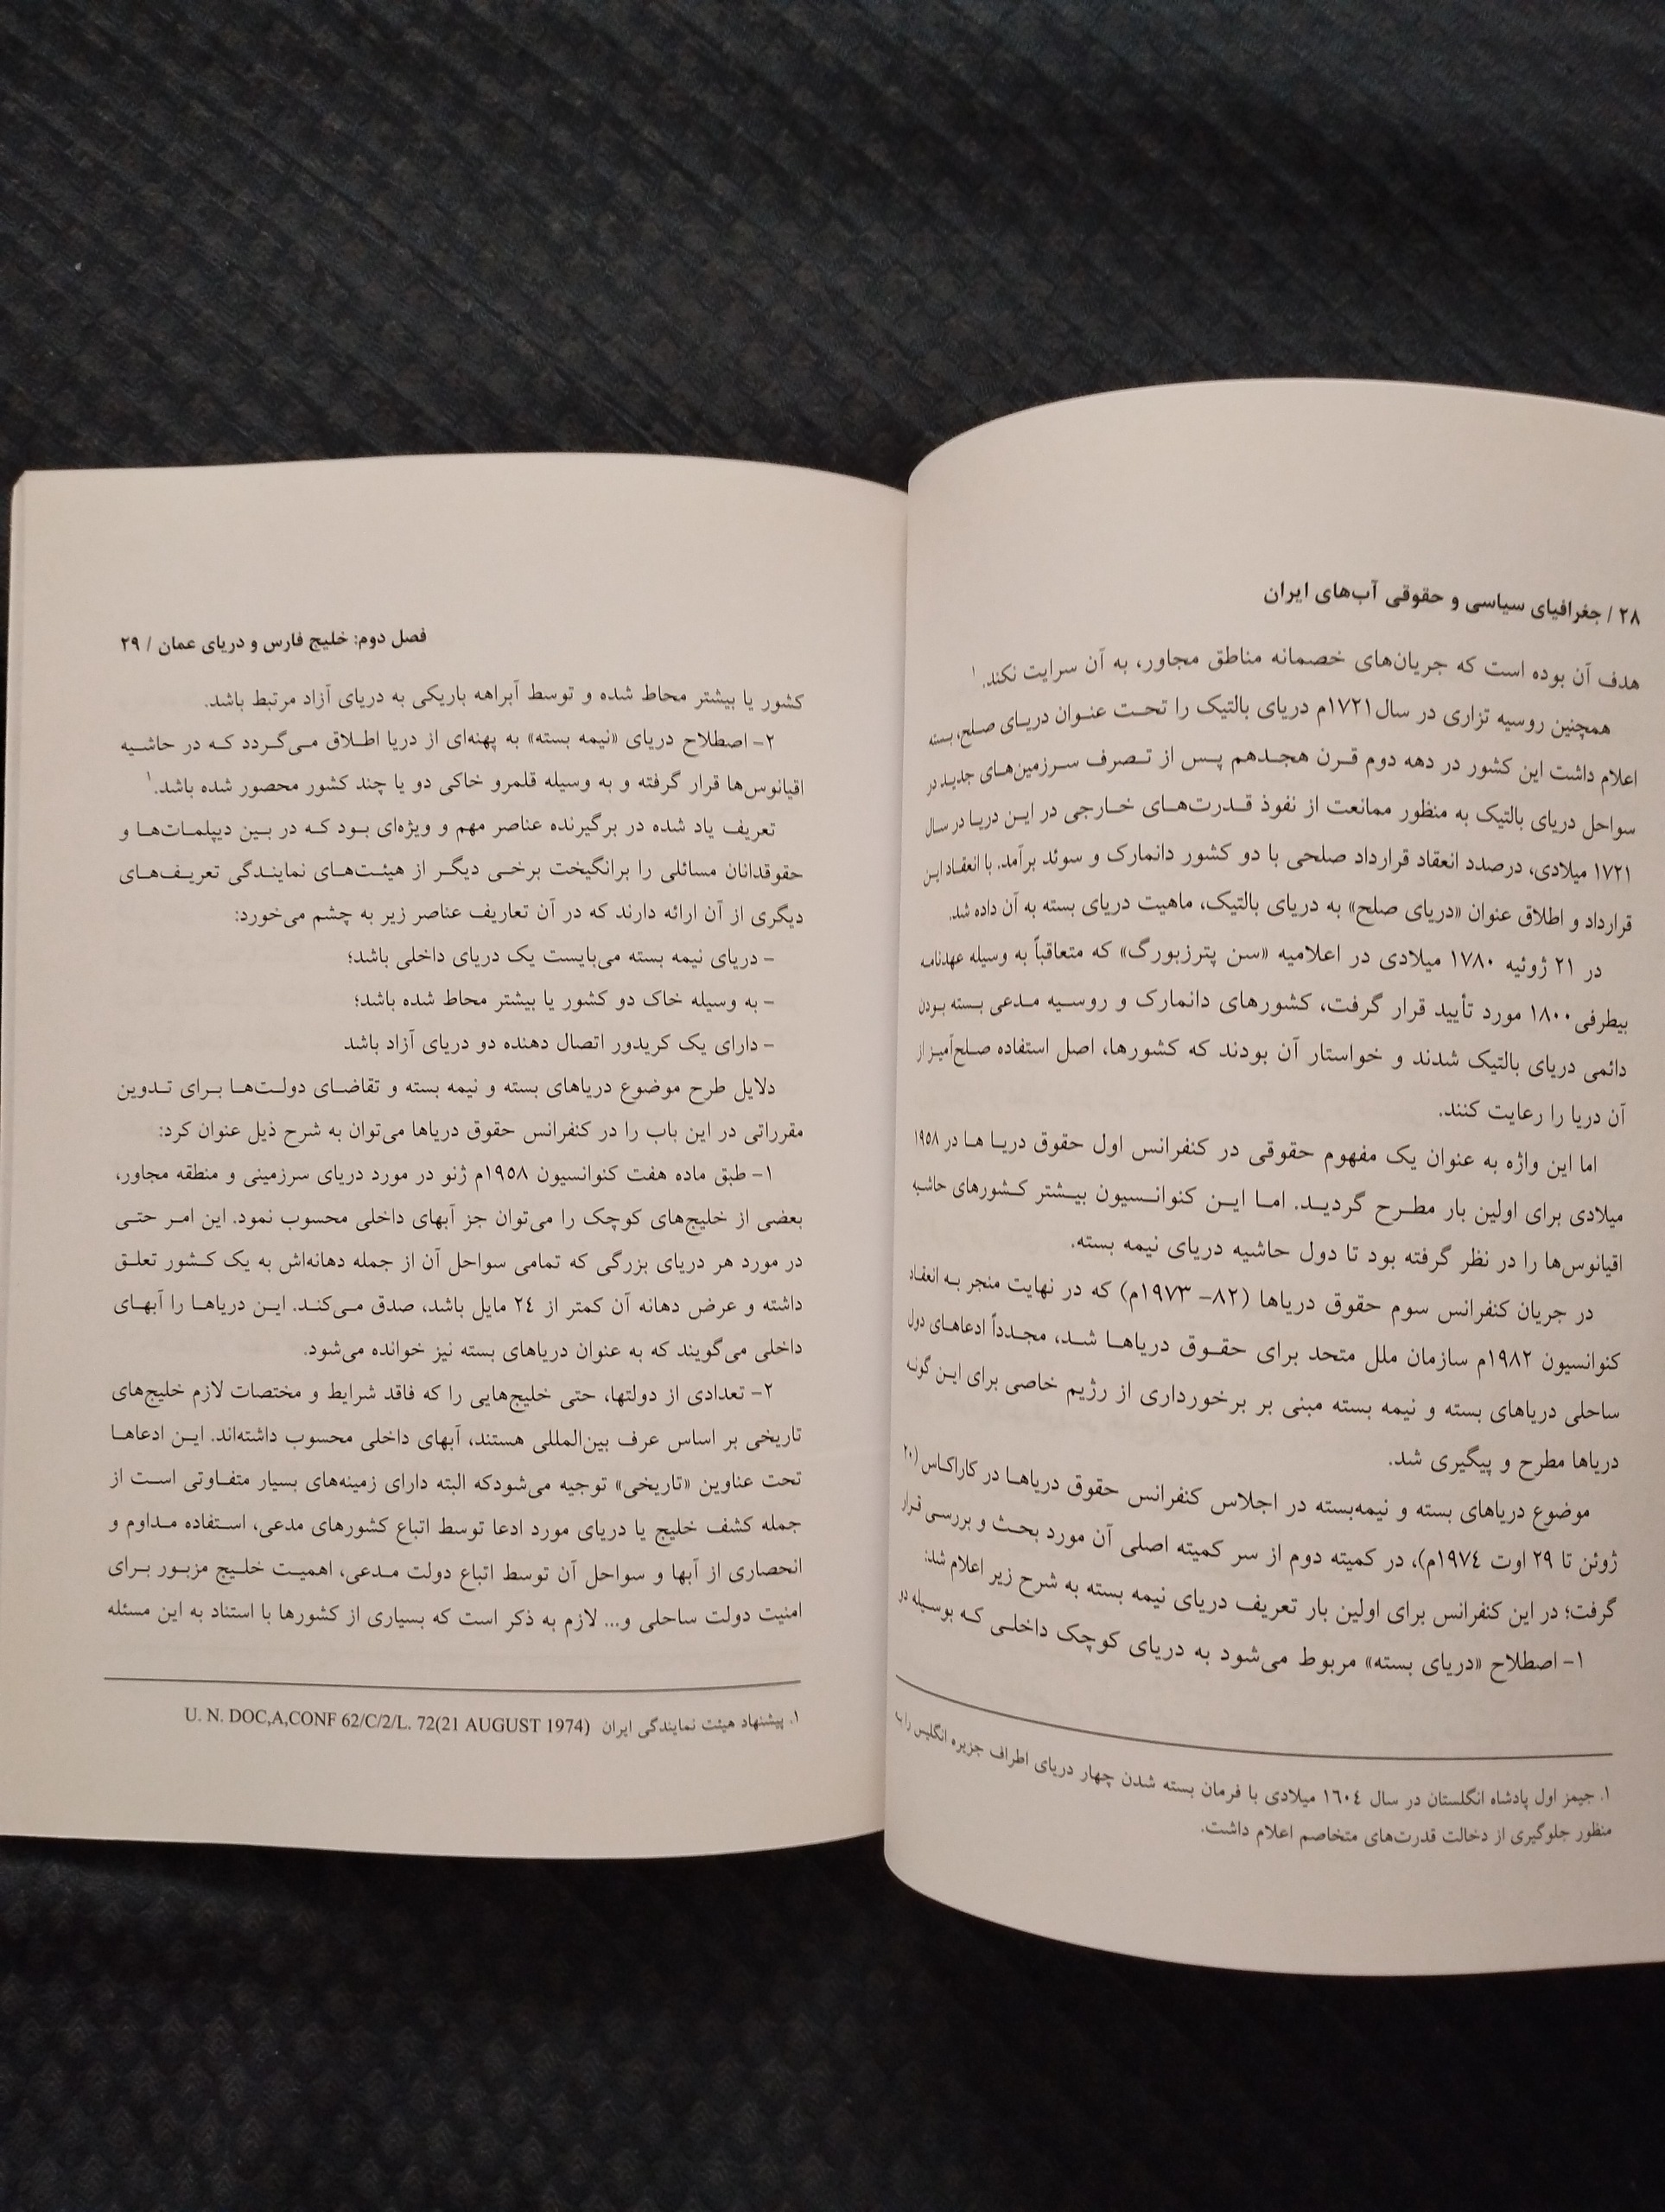 ۲۸ / جغرافیای سیاسی و حقوقی آب‌های ایران
هدف آن بوده است که جریان‌های خصمانه مناطق مجاور، به آن سرایت نکند.۱
همچنین روسیه تزاری در سال۱۷۲۱م دریای بالتیک را تحت عنوان دریای صلح، بسته
اعلام داشت این کشور در دهه دوم قرن هجدهم پس از تصرف سرزمین‌های جدید در
سواحل دریای بالتیک به منظور ممانعت از نفوذ قدرت‌های خارجی در این دریا در سال
۱۷۲۱ میلادی، درصدد انعقاد قرارداد صلحی با دو کشور دانمارک و سوئد برآمد. با انعقاد این
قرارداد و اطلاق عنوان «دریای صلح» به دریای بالتیک، ماهیت دریای بسته به آن داده شد.
در ۲۱ ژوئیه ۱۷۸۰ میلادی در اعلامیه «سن پترزبورگ» که متعاقباً به وسیله عهدنامه
بیطرفی۱۸۰۰ مورد تأیید قرار گرفت، کشورهای دانمارک و روسیه مدعی بسته بودن
دائمی دریای بالتیک شدند و خواستار آن بودند که کشورها، اصل استفاده صلح‌آمیز از
آن دریا را رعایت کنند.
اما این واژه به عنوان یک مفهوم حقوقی در کنفرانس اول حقوق دریا ها در ۱۹۵۸
میلادی برای اولین بار مطرح گردید. اما این کنوانسیون بیشتر کشورهای حاشیه
اقیانوس‌ها را در نظر گرفته بود تا دول حاشیه دریای نیمه بسته.
در جریان کنفرانس سوم حقوق دریاها (۸۲- ۱۹۷۳م) که در نهایت منجر به انعقاد
کنوانسیون ۱۹۸۲م سازمان ملل متحد برای حقوق دریاها شد، مجدداً ادعاهای دول
ساحلی دریاهای بسته و نیمه بسته مبنی بر برخورداری از رژیم خاصی برای این گونه
دریاها مطرح و پیگیری شد.
موضوع دریاهای بسته و نیمه‌بسته در اجلاس کنفرانس حقوق دریاها در کاراکاس (۲۰
ژوئن تا ۲۹ اوت ۱۹۷٤م)، در کمیته دوم از سر کمیته اصلی آن مورد بحث و بررسی قرار
گرفت؛ در این کنفرانس برای اولین بار تعریف دریای نیمه بسته به شرح زیر اعلام شد:
۱- اصطلاح «دریای بسته» مربوط می‌شود به دریای کوچک داخلی که بوسیله دو
۱. جیمز اول پادشاه انگلستان در سال ۱٦۰٤ میلادی با فرمان بسته شدن چهار دریای اطراف جزیره انگلیس را به
منظور جلوگیری از دخالت قدرت‌های متخاصم اعلام داشت.
فصل دوم: خلیج فارس و دریای عمان / ۲۹
کشور یا بیشتر محاط شده و توسط آبراهه باریکی به دریای آزاد مرتبط باشد.
۲- اصطلاح دریای «نیمه بسته» به پهنه‌ای از دریا اطلاق می‌گردد که در حاشیه
اقیانوس‌ها قرار گرفته و به وسیله قلمرو خاکی دو یا چند کشور محصور شده باشد.۱
تعریف یاد شده در برگیرنده عناصر مهم و ویژه‌ای بود که در بین دیپلمات‌ها و
حقوقدانان مسائلی را برانگیخت برخی دیگر از هیئت‌های نمایندگی تعریف‌های
دیگری از آن ارائه دارند که در آن تعاریف عناصر زیر به چشم می‌خورد:
- دریای نیمه بسته می‌بایست یک دریای داخلی باشد؛
- به وسیله خاک دو کشور یا بیشتر محاط شده باشد؛
- دارای یک کریدور اتصال دهنده دو دریای آزاد باشد
دلایل طرح موضوع دریاهای بسته و نیمه بسته و تقاضای دولت‌ها برای تدوین
مقرراتی در این باب را در کنفرانس حقوق دریاها می‌توان به شرح ذیل عنوان کرد:
۱- طبق ماده هفت کنوانسیون ۱۹۵۸م ژنو در مورد دریای سرزمینی و منطقه مجاور،
بعضی از خلیج‌های کوچک را می‌توان جز آبهای داخلی محسوب نمود. این امر حتی
در مورد هر دریای بزرگی که تمامی سواحل آن از جمله دهانه‌اش به یک کشور تعلق
داشته و عرض دهانه آن کمتر از ۲٤ مایل باشد، صدق می‌کند. این دریاها را آبهای
داخلی می‌گویند که به عنوان دریاهای بسته نیز خوانده می‌شود.
۲- تعدادی از دولتها، حتی خلیج‌هایی را که فاقد شرایط و مختصات لازم خلیج‌های
تاریخی بر اساس عرف بین‌المللی هستند، آبهای داخلی محسوب داشته‌اند. این ادعاها
تحت عناوین «تاریخی» توجیه می‌شودکه البته دارای زمینه‌های بسیار متفاوتی است از
جمله کشف خلیج یا دریای مورد ادعا توسط اتباع کشورهای مدعی، استفاده مداوم و
انحصاری از آبها و سواحل آن توسط اتباع دولت مدعی، اهمیت خلیج مزبور برای
امنیت دولت ساحلی و... لازم به ذکر است که بسیاری از کشورها با استناد به این مسئله
۱. پیشنهاد هیئت نمایندگی ایران U. N. DOC,A,CONF 62/C/2/L. 72(21 AUGUST 1974)